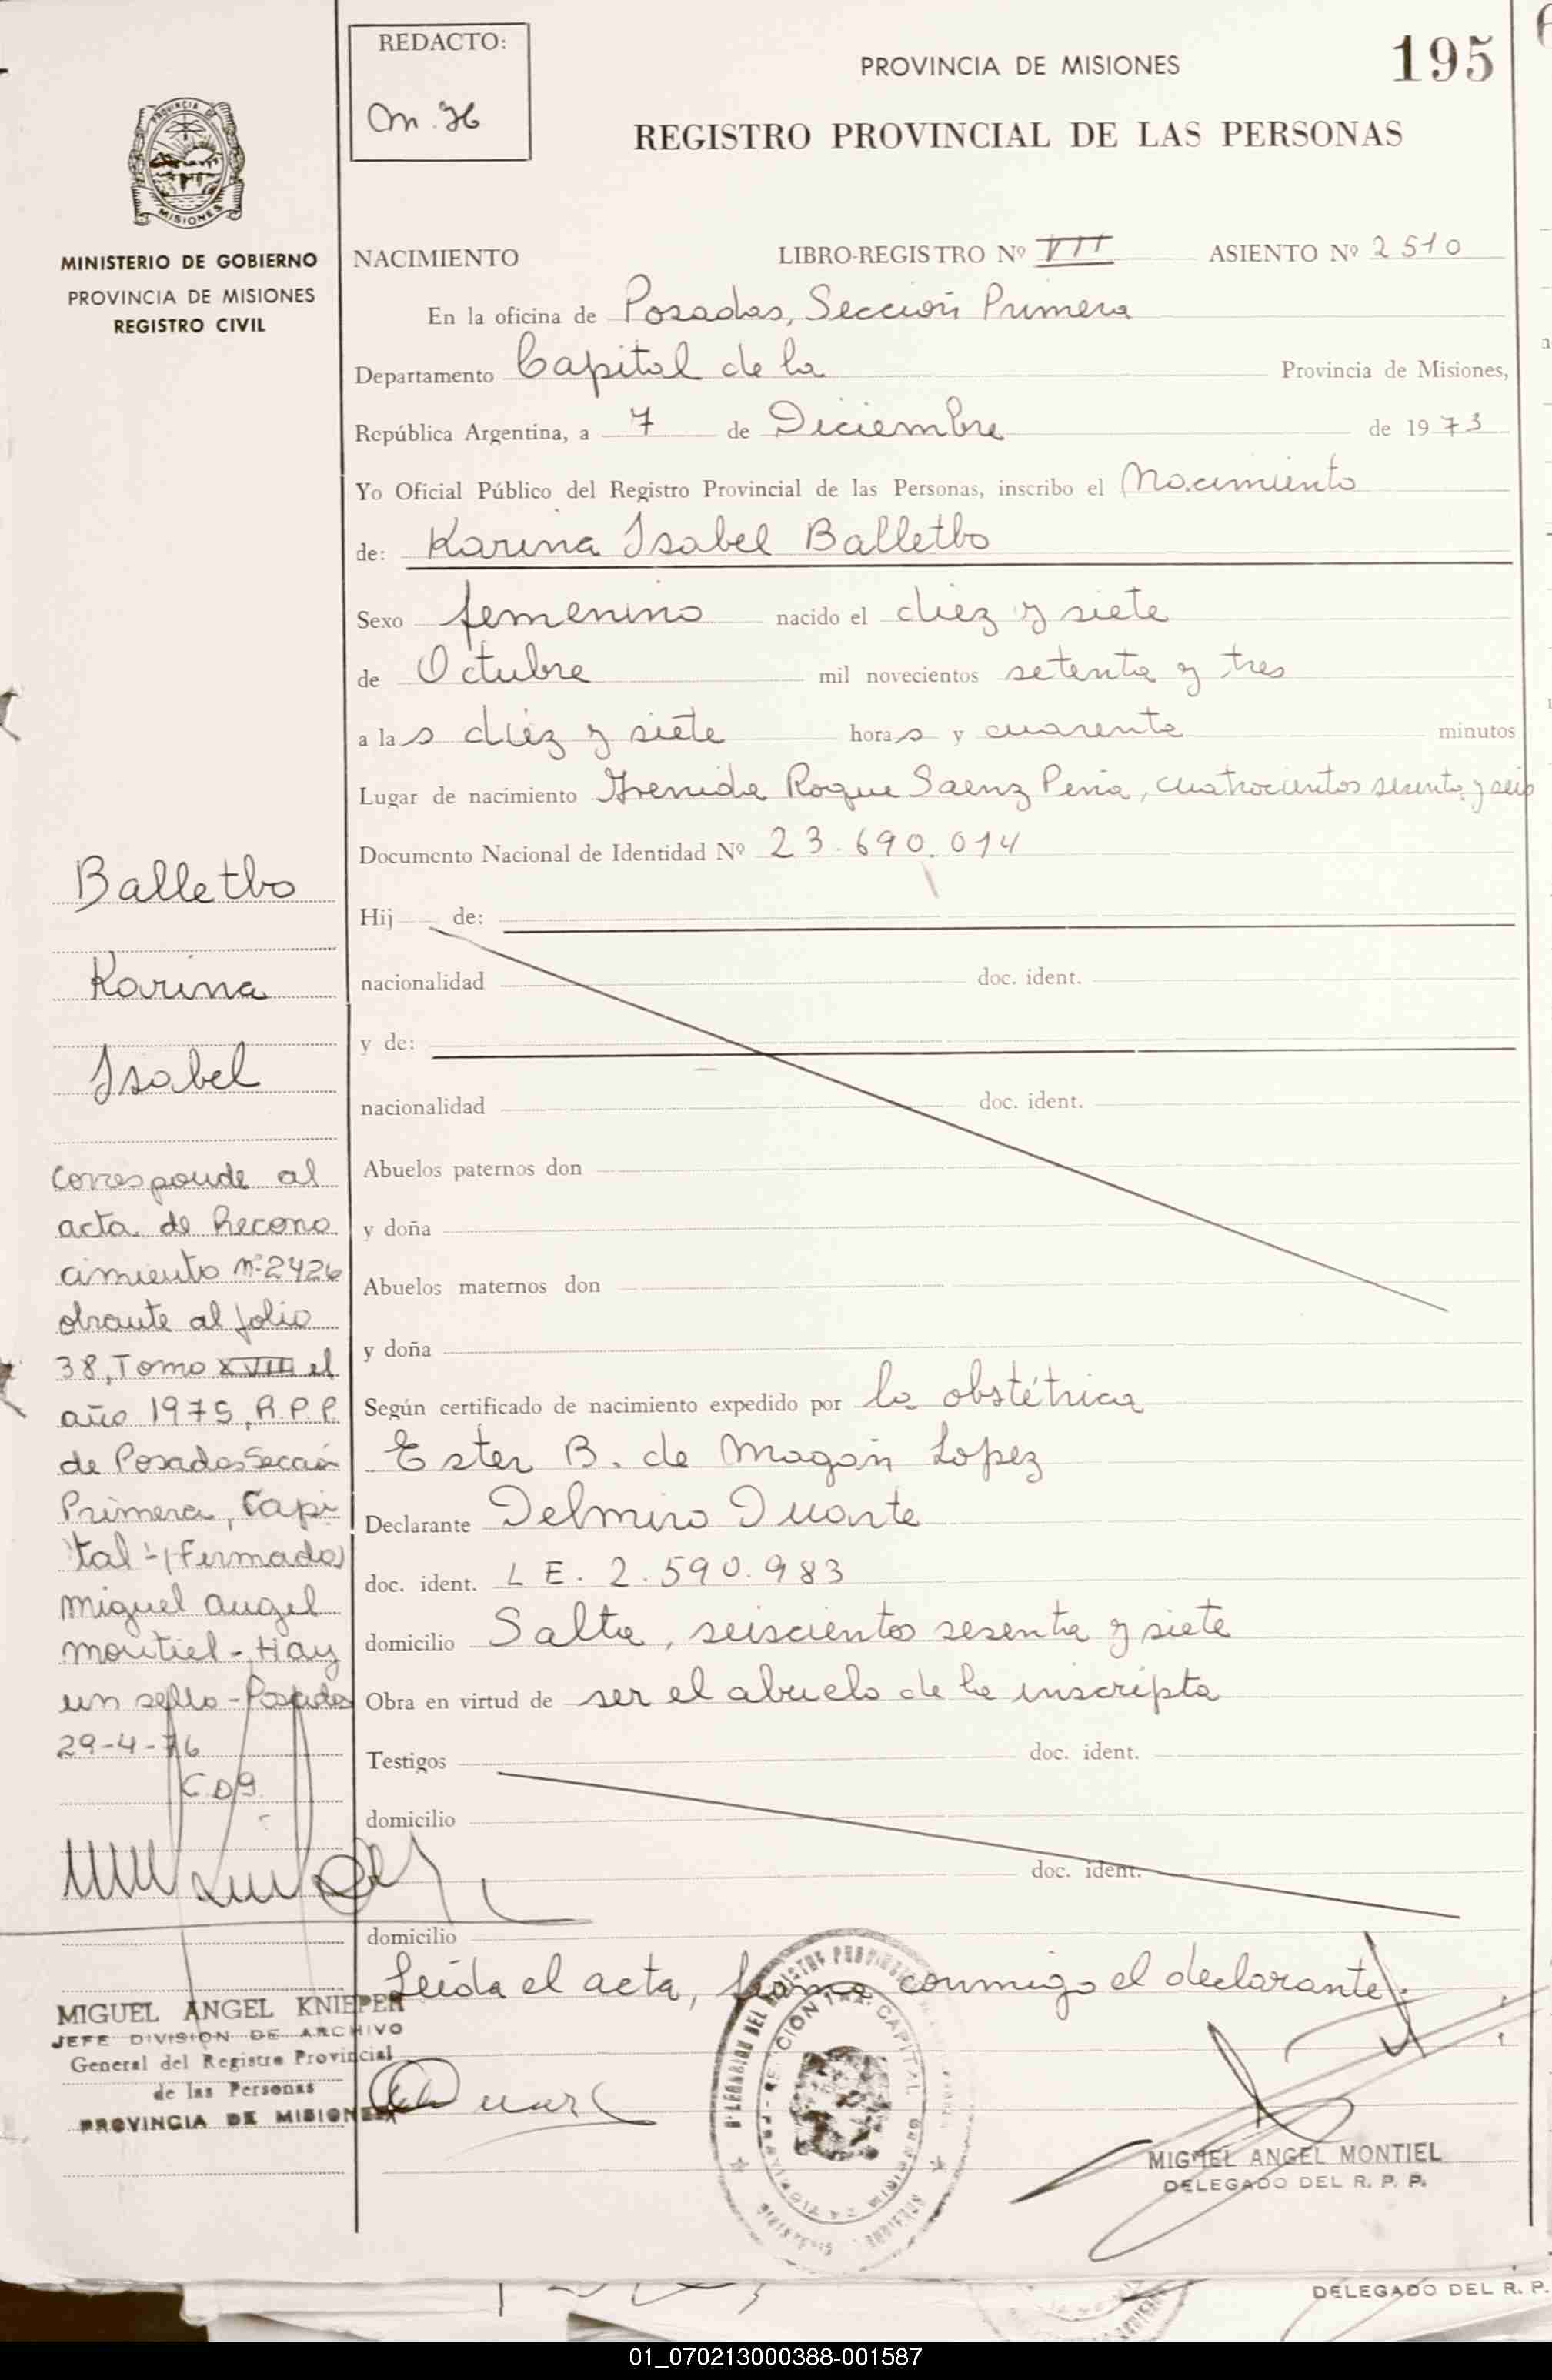 REDACTO:
PROVINCIA DE MISIONES
195
REGISTRO PROVINCIAL DE LAS PERSONAS
MISIONES
MINISTERIO DE GOBIERNO
PROVINCIA DE MISIONES
REGISTRO CIVIL
NACIMIENTO LIBRO-REGISTRO Nº VII ASIENTO Nº 2510
En la oficina de Posadas, Sección Primera
Departamento Capital de la Provincia de Misiones,
República Argentina, a 7 de Diciembre de 1973
Yo Oficial Público del Registro Provincial de las Personas, inscribo el Nacimiento
de: Karina Isabel Balletbo
Sexo femenino nacido el diez y siete
de Octubre mil novecientos setenta y tres
a las diez y siete horas y cuarenta minutos
Lugar de nacimiento Avenida Roque Saenz Peña, cuatrocientos sesenta y seis
Documento Nacional de Identidad Nº 23.690.014
Hij de:
nacionalidad doc. ident.
y de:
nacionalidad doc. ident.
Abuelos paternos don
y doña
Abuelos maternos don
y doña
Según certificado de nacimiento expedido por la obstétrica
Ester B. de Magan Lopez
Declarante Delmiro Duarte
doc. ident. L E. 2.590.983
domicilio Salta, seiscientos sesenta y siete
Obra en virtud de ser el abuelo de la inscripta
Testigos doc. ident.
domicilio
doc. ident.
domicilio
Leída el acta, firma conmigo el declarante.
Balletbo
Karina
Isabel
Corresponde al
acta de Recono
cimiento Nº 2426
obrante al folio
38, Tomo XVIII el
año 1975, R.P.P.
de Posadas Sección
Primera, Capi
tal - (Firmado)
Miguel Angel
Montiel - Hay
un sello - Posadas
29-4-76
MIGUEL ANGEL KNIEPER
JEFE DIVISION DE ARCHIVO
General del Registro Provincial
de las Personas
PROVINCIA DE MISIONES
MIGUEL ANGEL MONTIEL
DELEGADO DEL R. P. P.
DELEGADO DEL R. P.
01_070213000388-001587